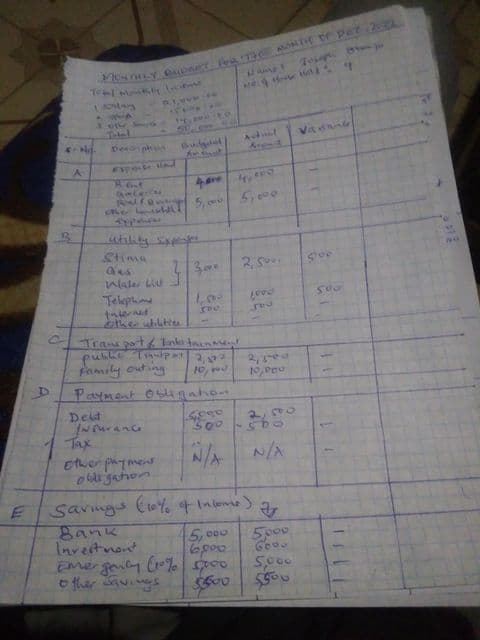 MONTHLY BUDGET FOR THE MONTH OF DEC. 2022
Total Monthly Income
Name: Joseph
No. of House Holds: 4
1 Salary - 21,000.00
- 15,000.00
3 other - 14,000.00
Total - 50,000.00
S-No. Description Budgeted Amount Actual Amount Variance
A Expense Head
Rent 4,000 4,000 -
Food & 5,000 5,000 -
Other household
Expenses
B Utility Expenses
Stima
Gas } 3,000 2,500 500
Water bill
Telephone 1,500 1,000 500
Internet 500 500 -
Other utilities - -
C Transport & Entertainment
Public Transport 2,500 2,500 -
Family outing 10,000 10,000 -
D Payment Obligation
Debt 2,500
Insurance 500 - 500 -
Tax --
Other payment N/A N/A -
obligation
E Savings (10% of Income)
Bank 5,000 5000 -
Investment 6000 6000 -
Emergency (10% 5,000 5,000 -
Other savings 5500 5500 -